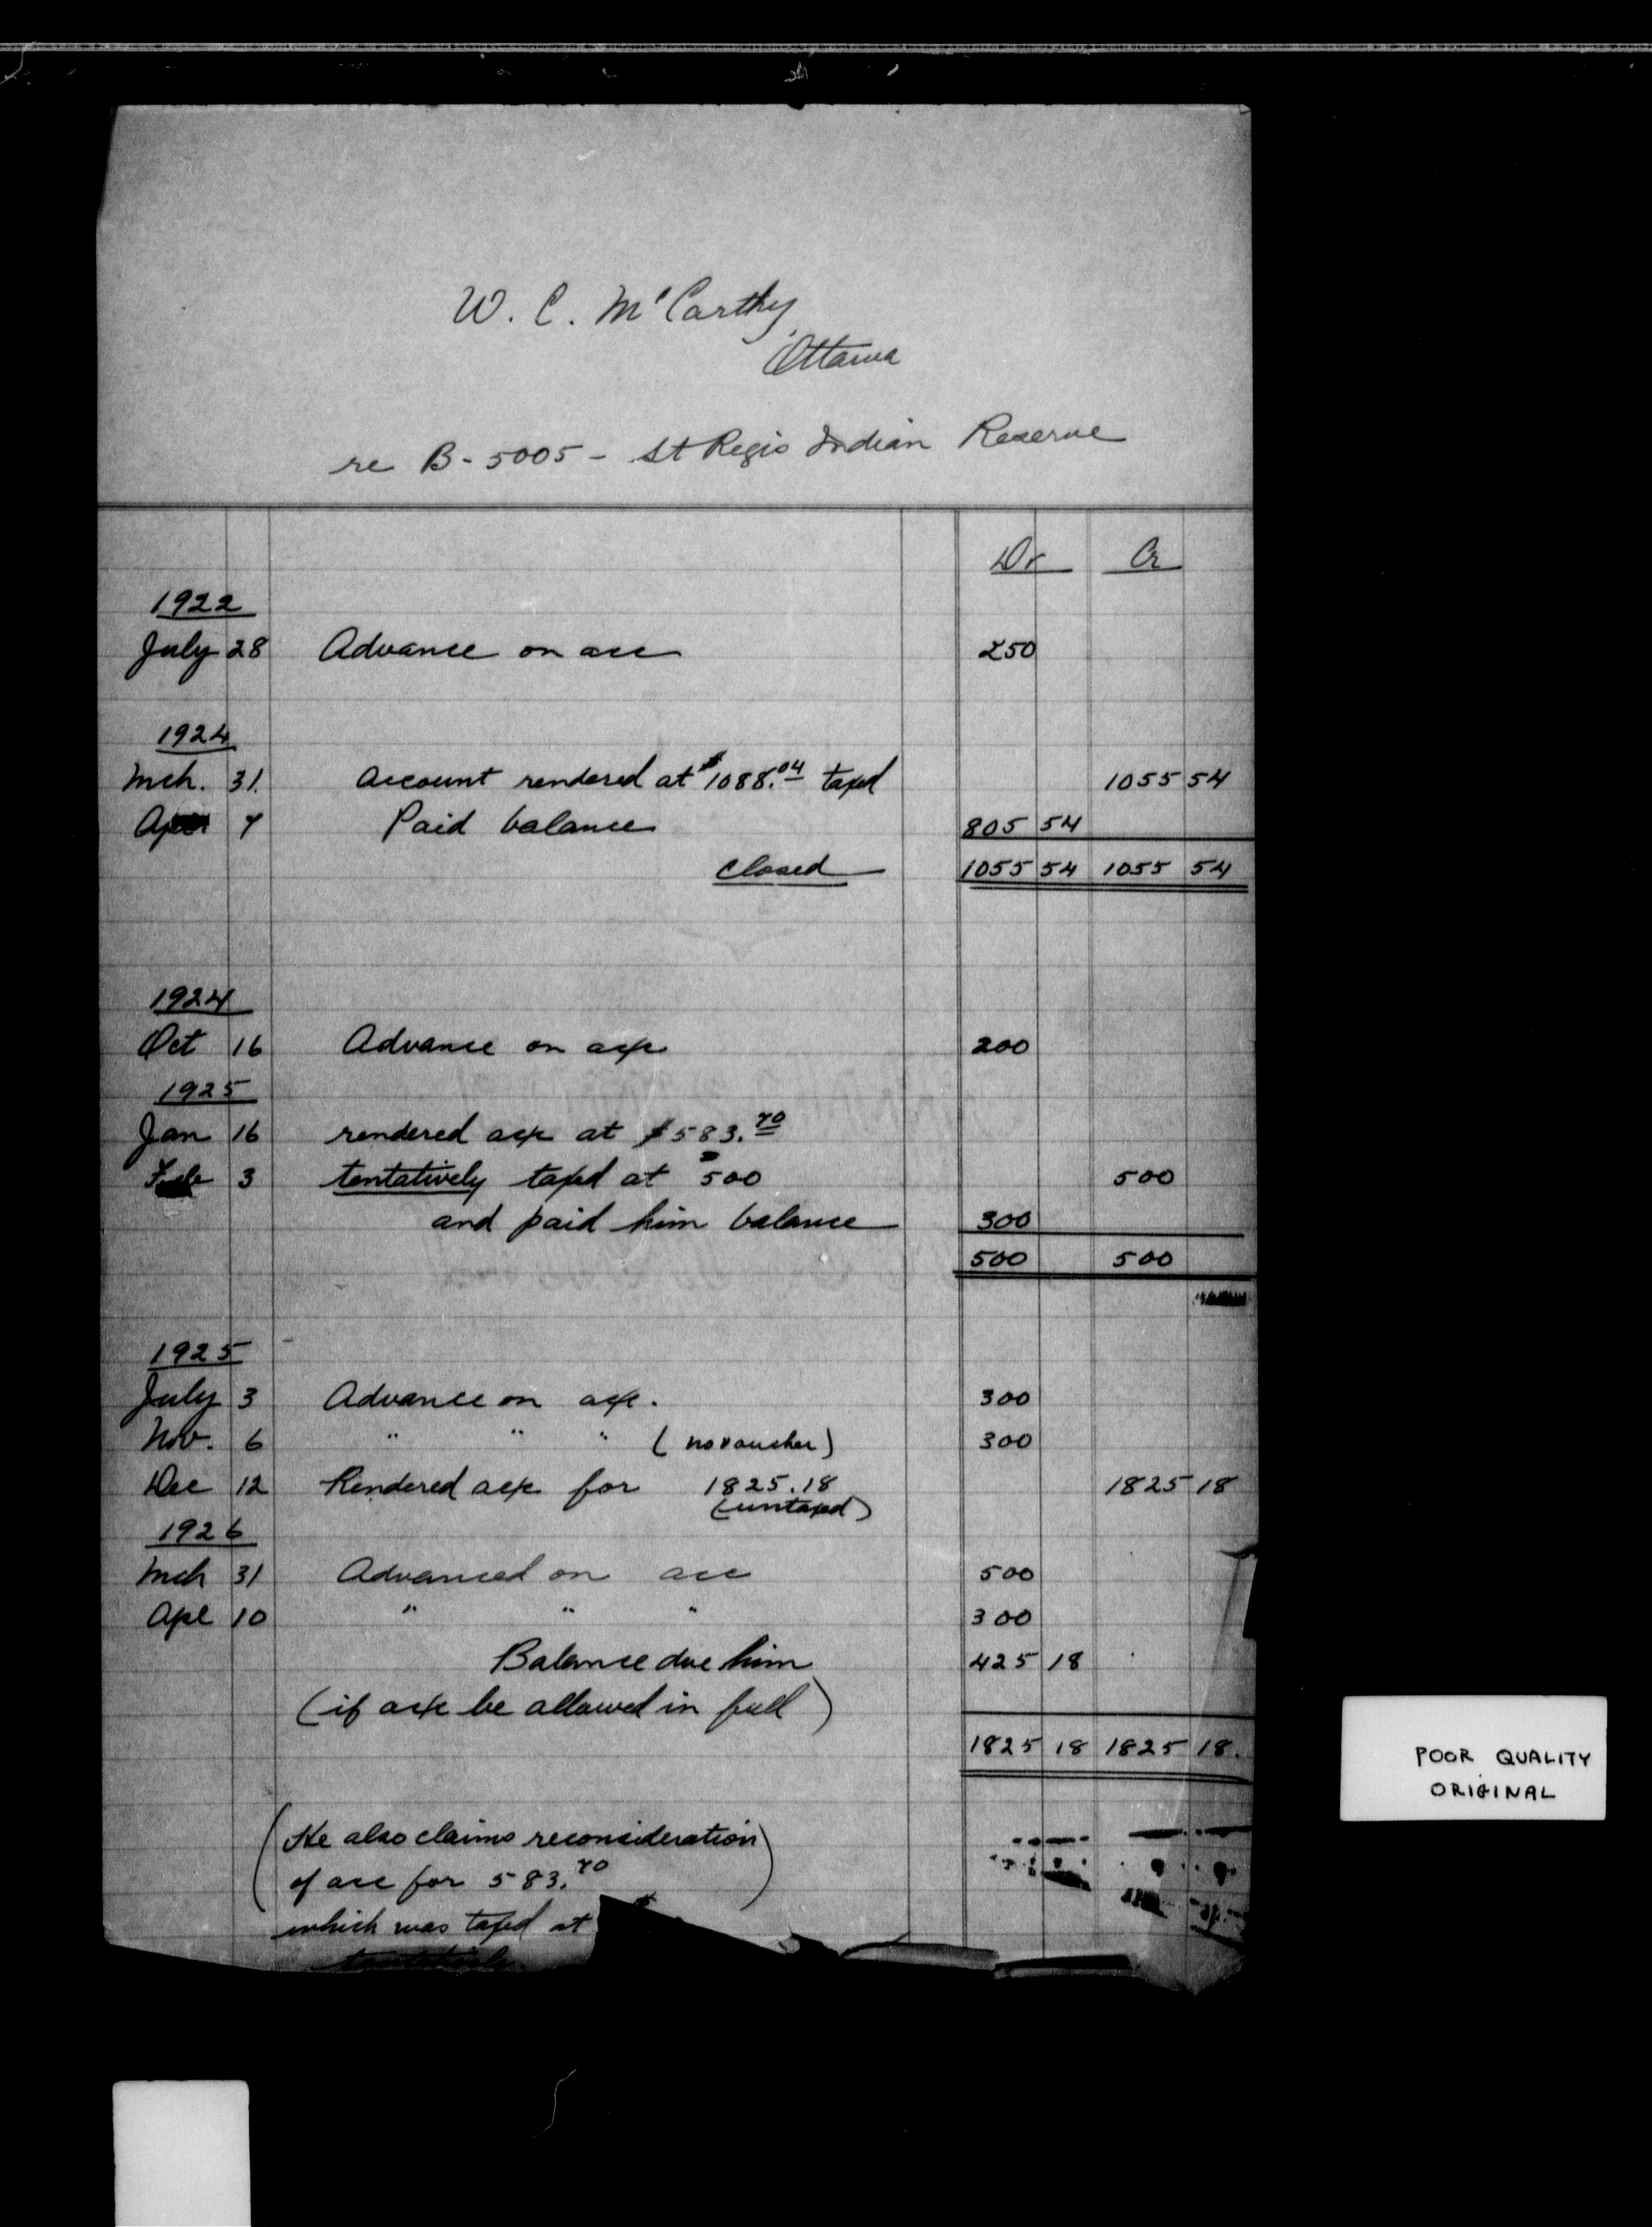 W. C. McCarthy
Ottawa
re B-5005 - St Regis Indian Reserve
Dr Cr
1922
July 28 Advance on acc 250
1924
Mch. 31. Account rendered at $1088.04 taxed 1055 54
Apr 7 Paid balance 805 54
Closed 1055 54 1055 54
1924
Oct 16 Advance on a/c 200
1925
Jan 16 rendered a/c at $583.70
Feb 3 tentatively taxed at 500 500
and paid him balance 300
500 500
1925
July 3 Advance on a/c. 300
Nov. 6 " " " (no voucher) 300
Dec 12 Rendered a/c for 1825.18 1825 18
(untaxed)
1926
Mch 31 Advanced on acc 500
Apl 10 " " " 300
Balance due him 425 18
(if a/c be allowed in full)
1825 18 1825 18.
(He also claims reconsideration
of acc for 583.70)
which was taxed at
POOR QUALITY
ORIGINAL